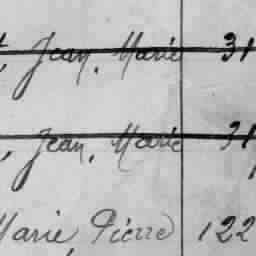 , Jean, Marie 31
, Jean, Marie 31
Marie, Pierre 122